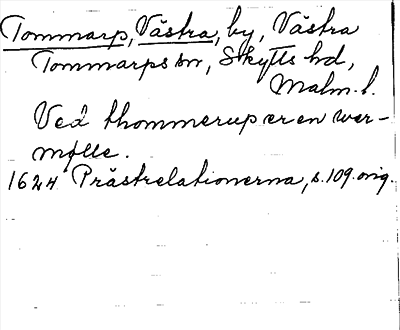 Tommarp, Västra, by, Västra
Tommarps sn, Skytts hd,
Malm. l.
Ved thommerup er en wer-
mølle.
1624 Prästrelationerna, s. 109. orig.